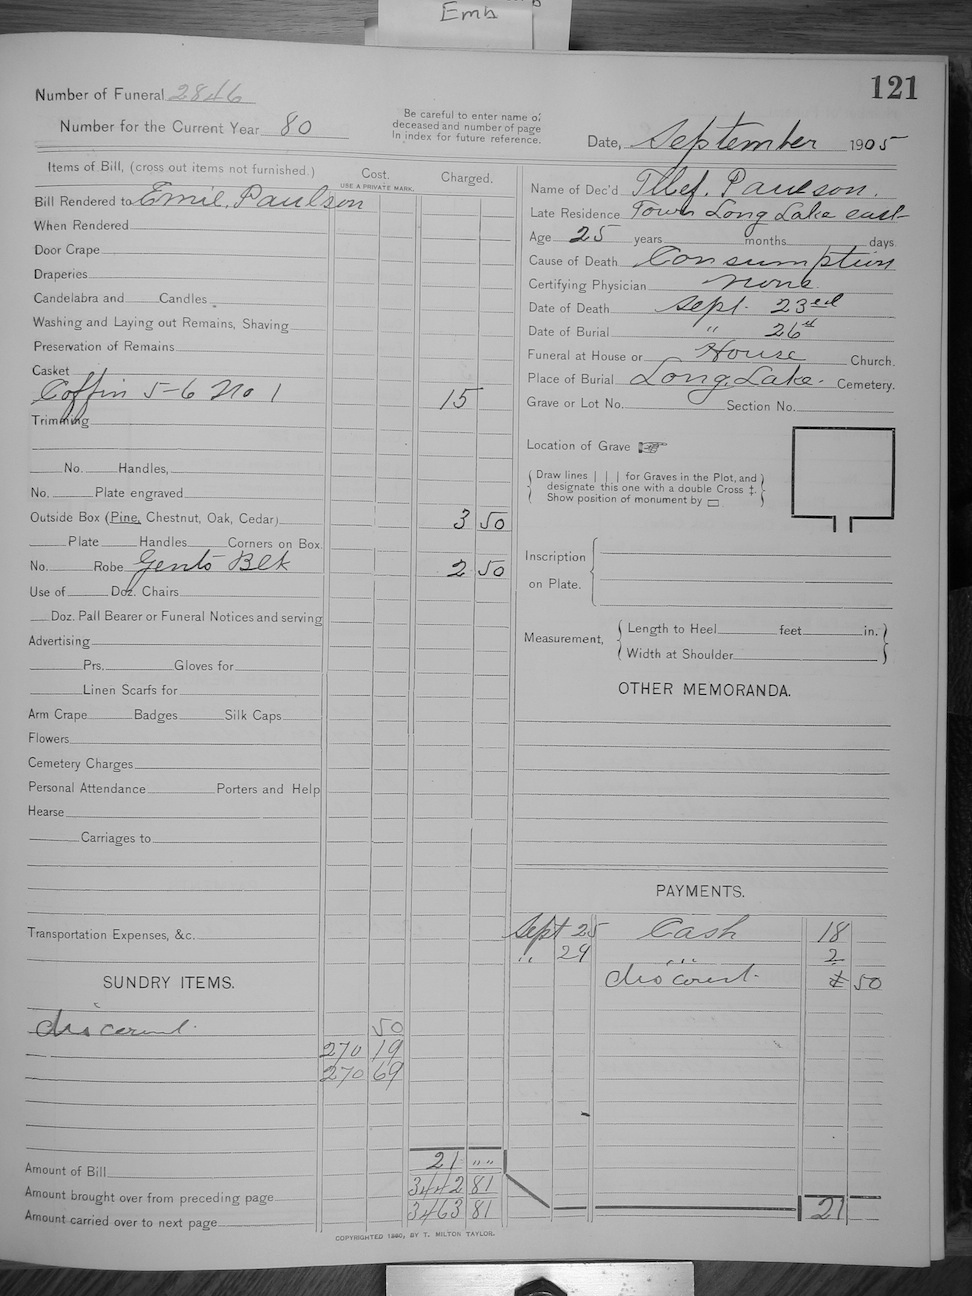 Emb
121
Number of Funeral 2846
Number for the Current Year 80
Be careful to enter name of
deceased and number of page
In index for future reference.
Date, September 1905
Items of Bill, (cross out items not furnished.)
Cost.
USE A PRIVATE MARK.
Charged.
Bill Rendered to Emil. Paulson
When Rendered
Door Crape
Draperies
Candelabra and Candles
Washing and Laying out Remains, Shaving
Preservation of Remains
Casket
Coffin 5-6 No 1 15
Trimming
No. Handles,
No. Plate engraved
Outside Box (Pine, Chestnut, Oak, Cedar) 3 50
Plate Handles Corners on Box.
No. Robe Gents Blk 2 50
Use of Doz. Chairs
Doz. Pall Bearer or Funeral Notices and serving
Advertising
Prs. Gloves for
Linen Scarfs for
Arm Crape Badges Silk Caps
Flowers
Cemetery Charges
Personal Attendance Porters and Help
Hearse
Carriages to
Transportation Expenses, &c.
SUNDRY ITEMS.
discount. 50
270 19
270 69
Amount of Bill 21 " "
Amount brought over from preceding page 3442 81
Amount carried over to next page 3463 81
COPYRIGHTED 1880, BY T. MILTON TAYLOR.
Name of Dec'd Paulson.
Late Residence Town Long Lake east
Age 25 years months days
Cause of Death Consumption
Certifying Physician none
Date of Death Sept. 23rd
Date of Burial " 26th
Funeral at House or House Church.
Place of Burial Long Lake. Cemetery.
Grave or Lot No. Section No.
Location of Grave ☞
Draw lines | | | for Graves in the Plot, and
designate this one with a double Cross ‡.
Show position of monument by ▭
Inscription
on Plate.
Measurement, Length to Heel feet in.
Width at Shoulder
OTHER MEMORANDA.
PAYMENTS.
Sept 25 Cash 18
" 29 " " 2
discount. 50
21